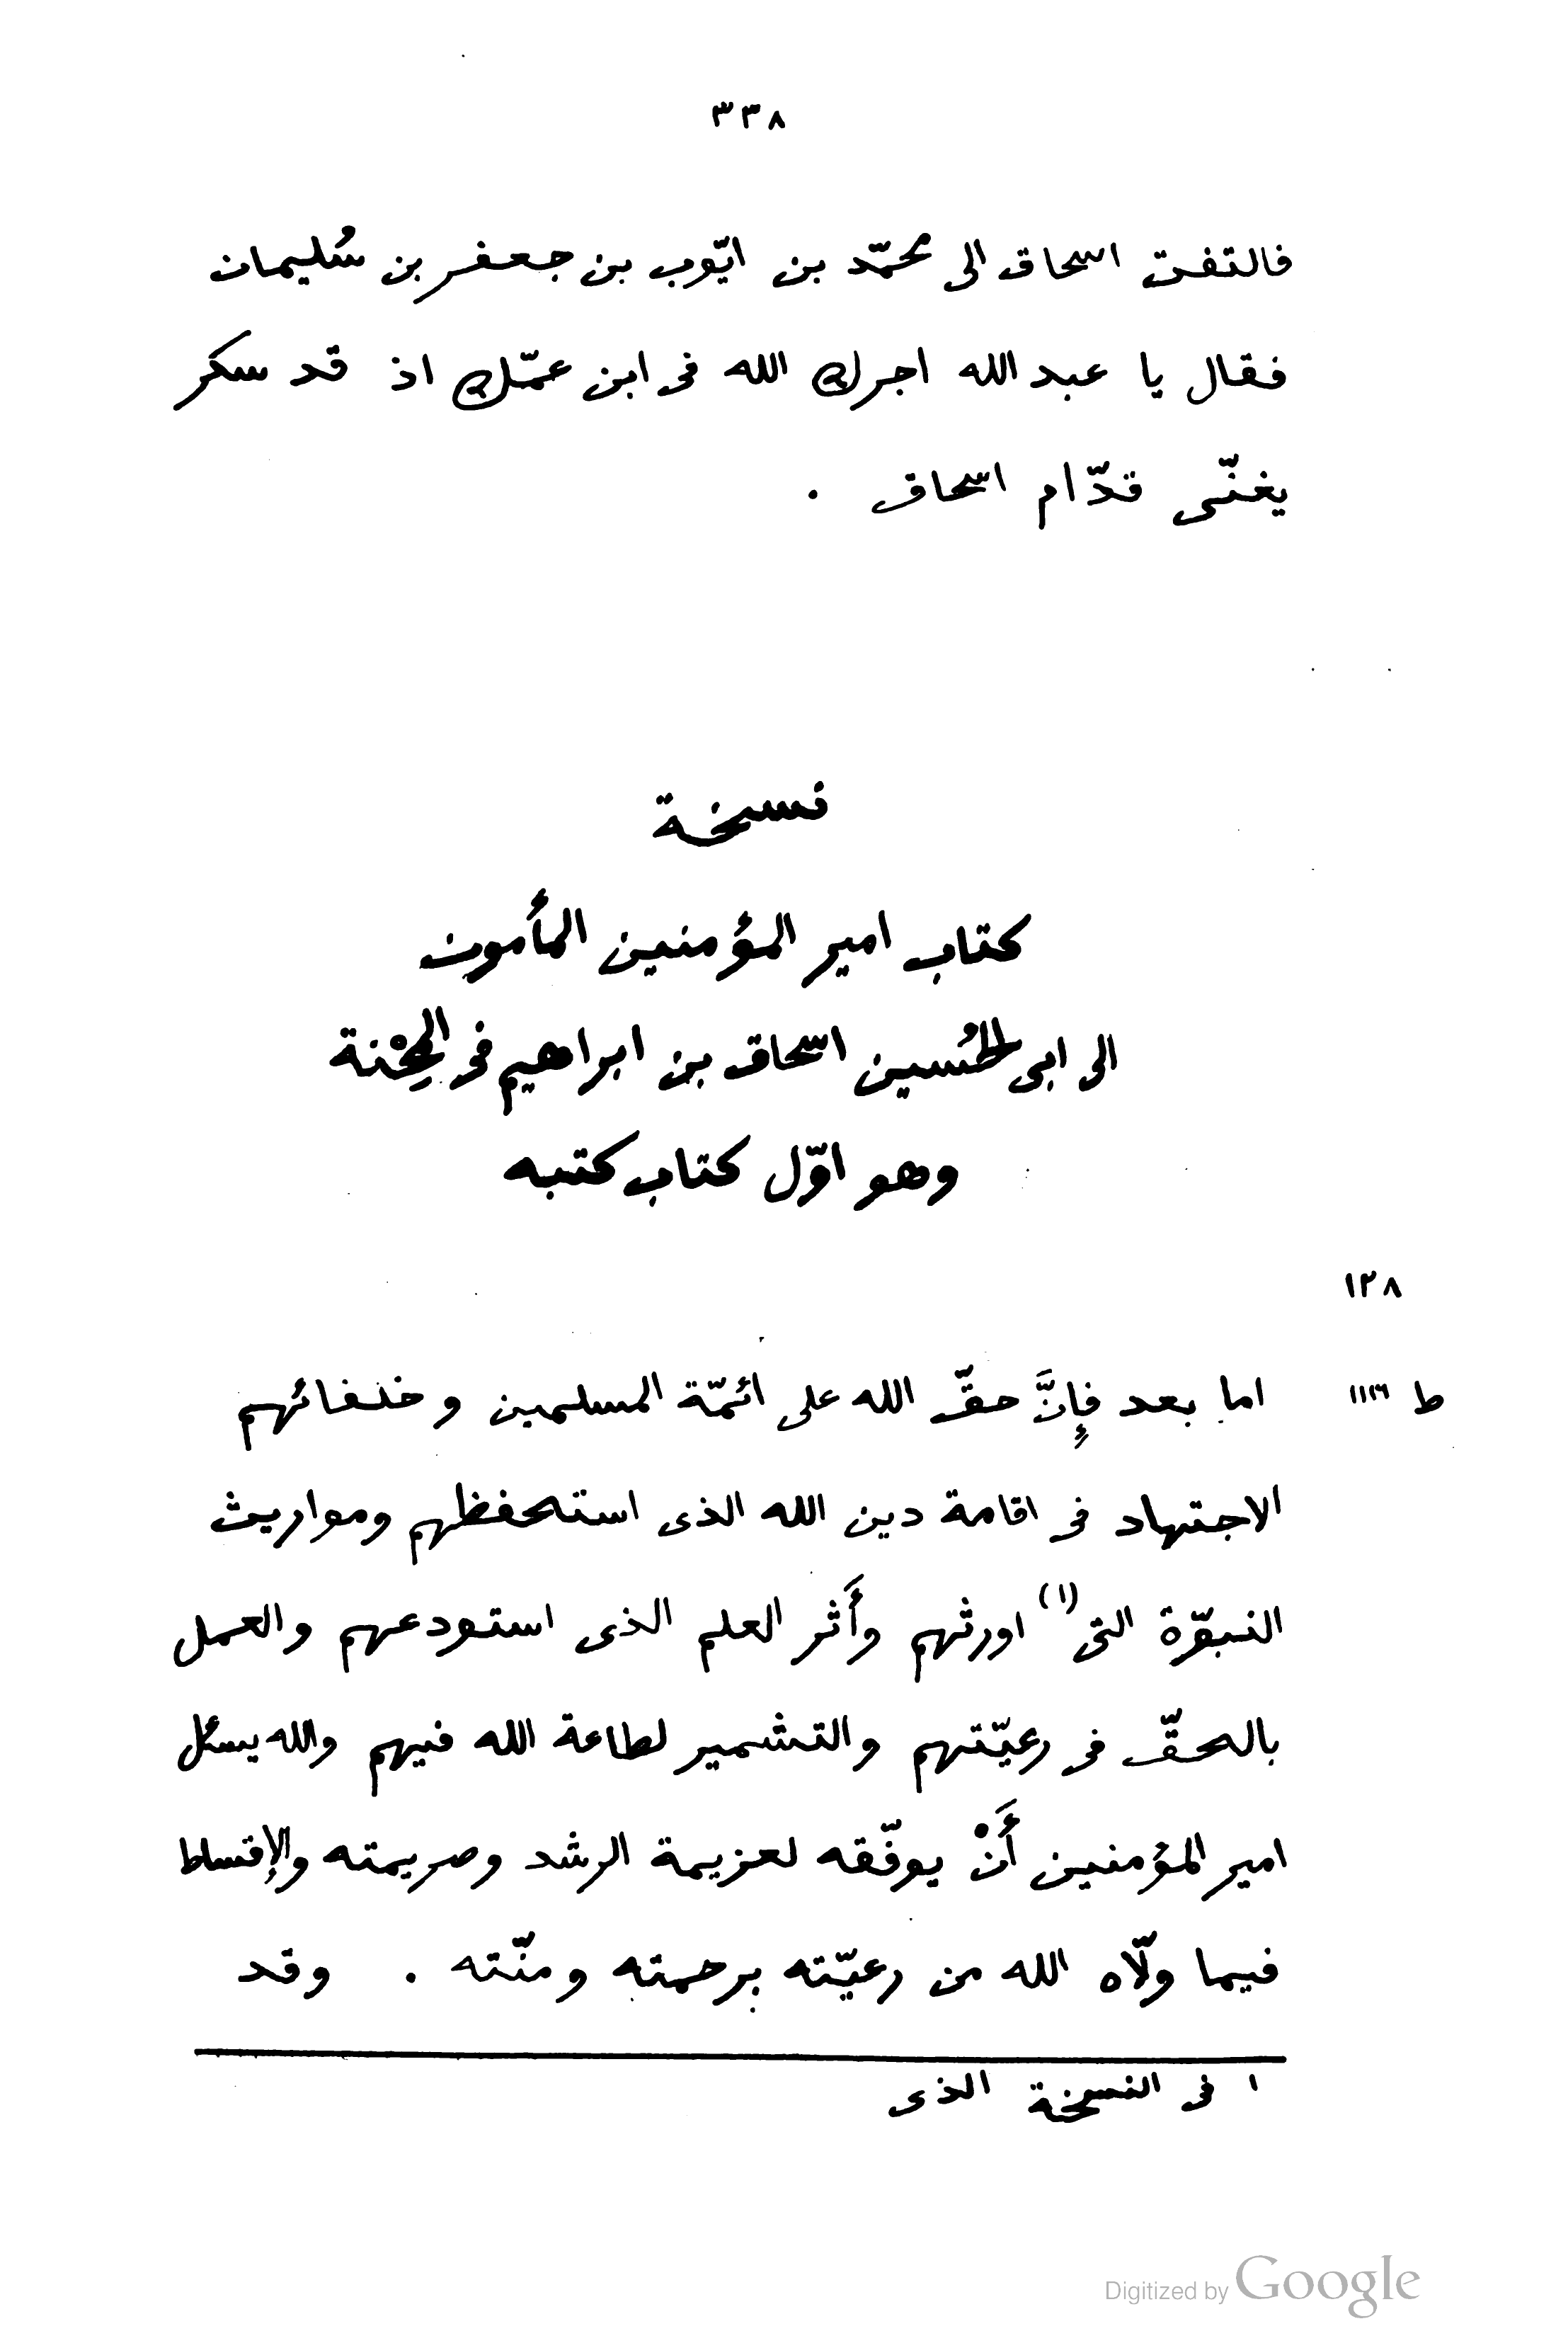 ٣٣٨
فالتفت اسحاق الى محمّد بن ايّوب بن جعفر بن سُليمان
فقال يا عبد الله اجرك الله فى ابن عمّك اذ قد سكر
يغنّى قدّام اسحاق .
نسخة
كتاب امير المؤمنين المأمون
الى ابى الحُسين اسحاق بن ابراهيم فى المِحْنة
وهو اوّل كتاب كتبه
١٢٨
ط ١١١٦ اما بعد فإنَّ حقّ الله على ائمّة المسلمين وخلفائهم
الاجتهاد فى اقامة دين الله الذى استحفظهم ومواريث
النبوّة التى (١) اورثهم وأَثر العلم الذى استودعهم والعمل
بالحقّ فى رعيّتهم والتشمير لطاعة الله فيهم والله يسئل
امير المؤمنين أَنْ يوفّقه لعزيمة الرشد وصريمته والإقساط
فيما ولّاه الله من رعيّته برحمته ومنّته . وقد
١ فى النسخة الذى
Digitized by Google